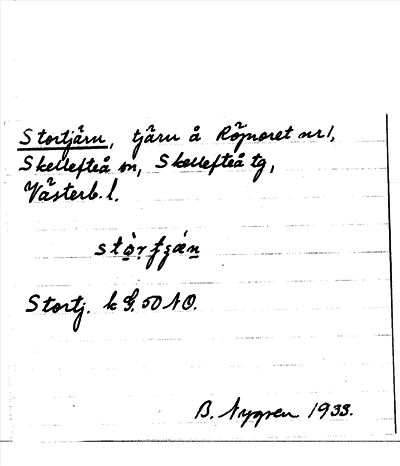 Stortjärn, tjärn å Röjnoret nr 1,
Skellefteå sn, Skellefteå tg,
Västerb. l.
Stortj. k G. 50 NO.
B. Nygren 1933.